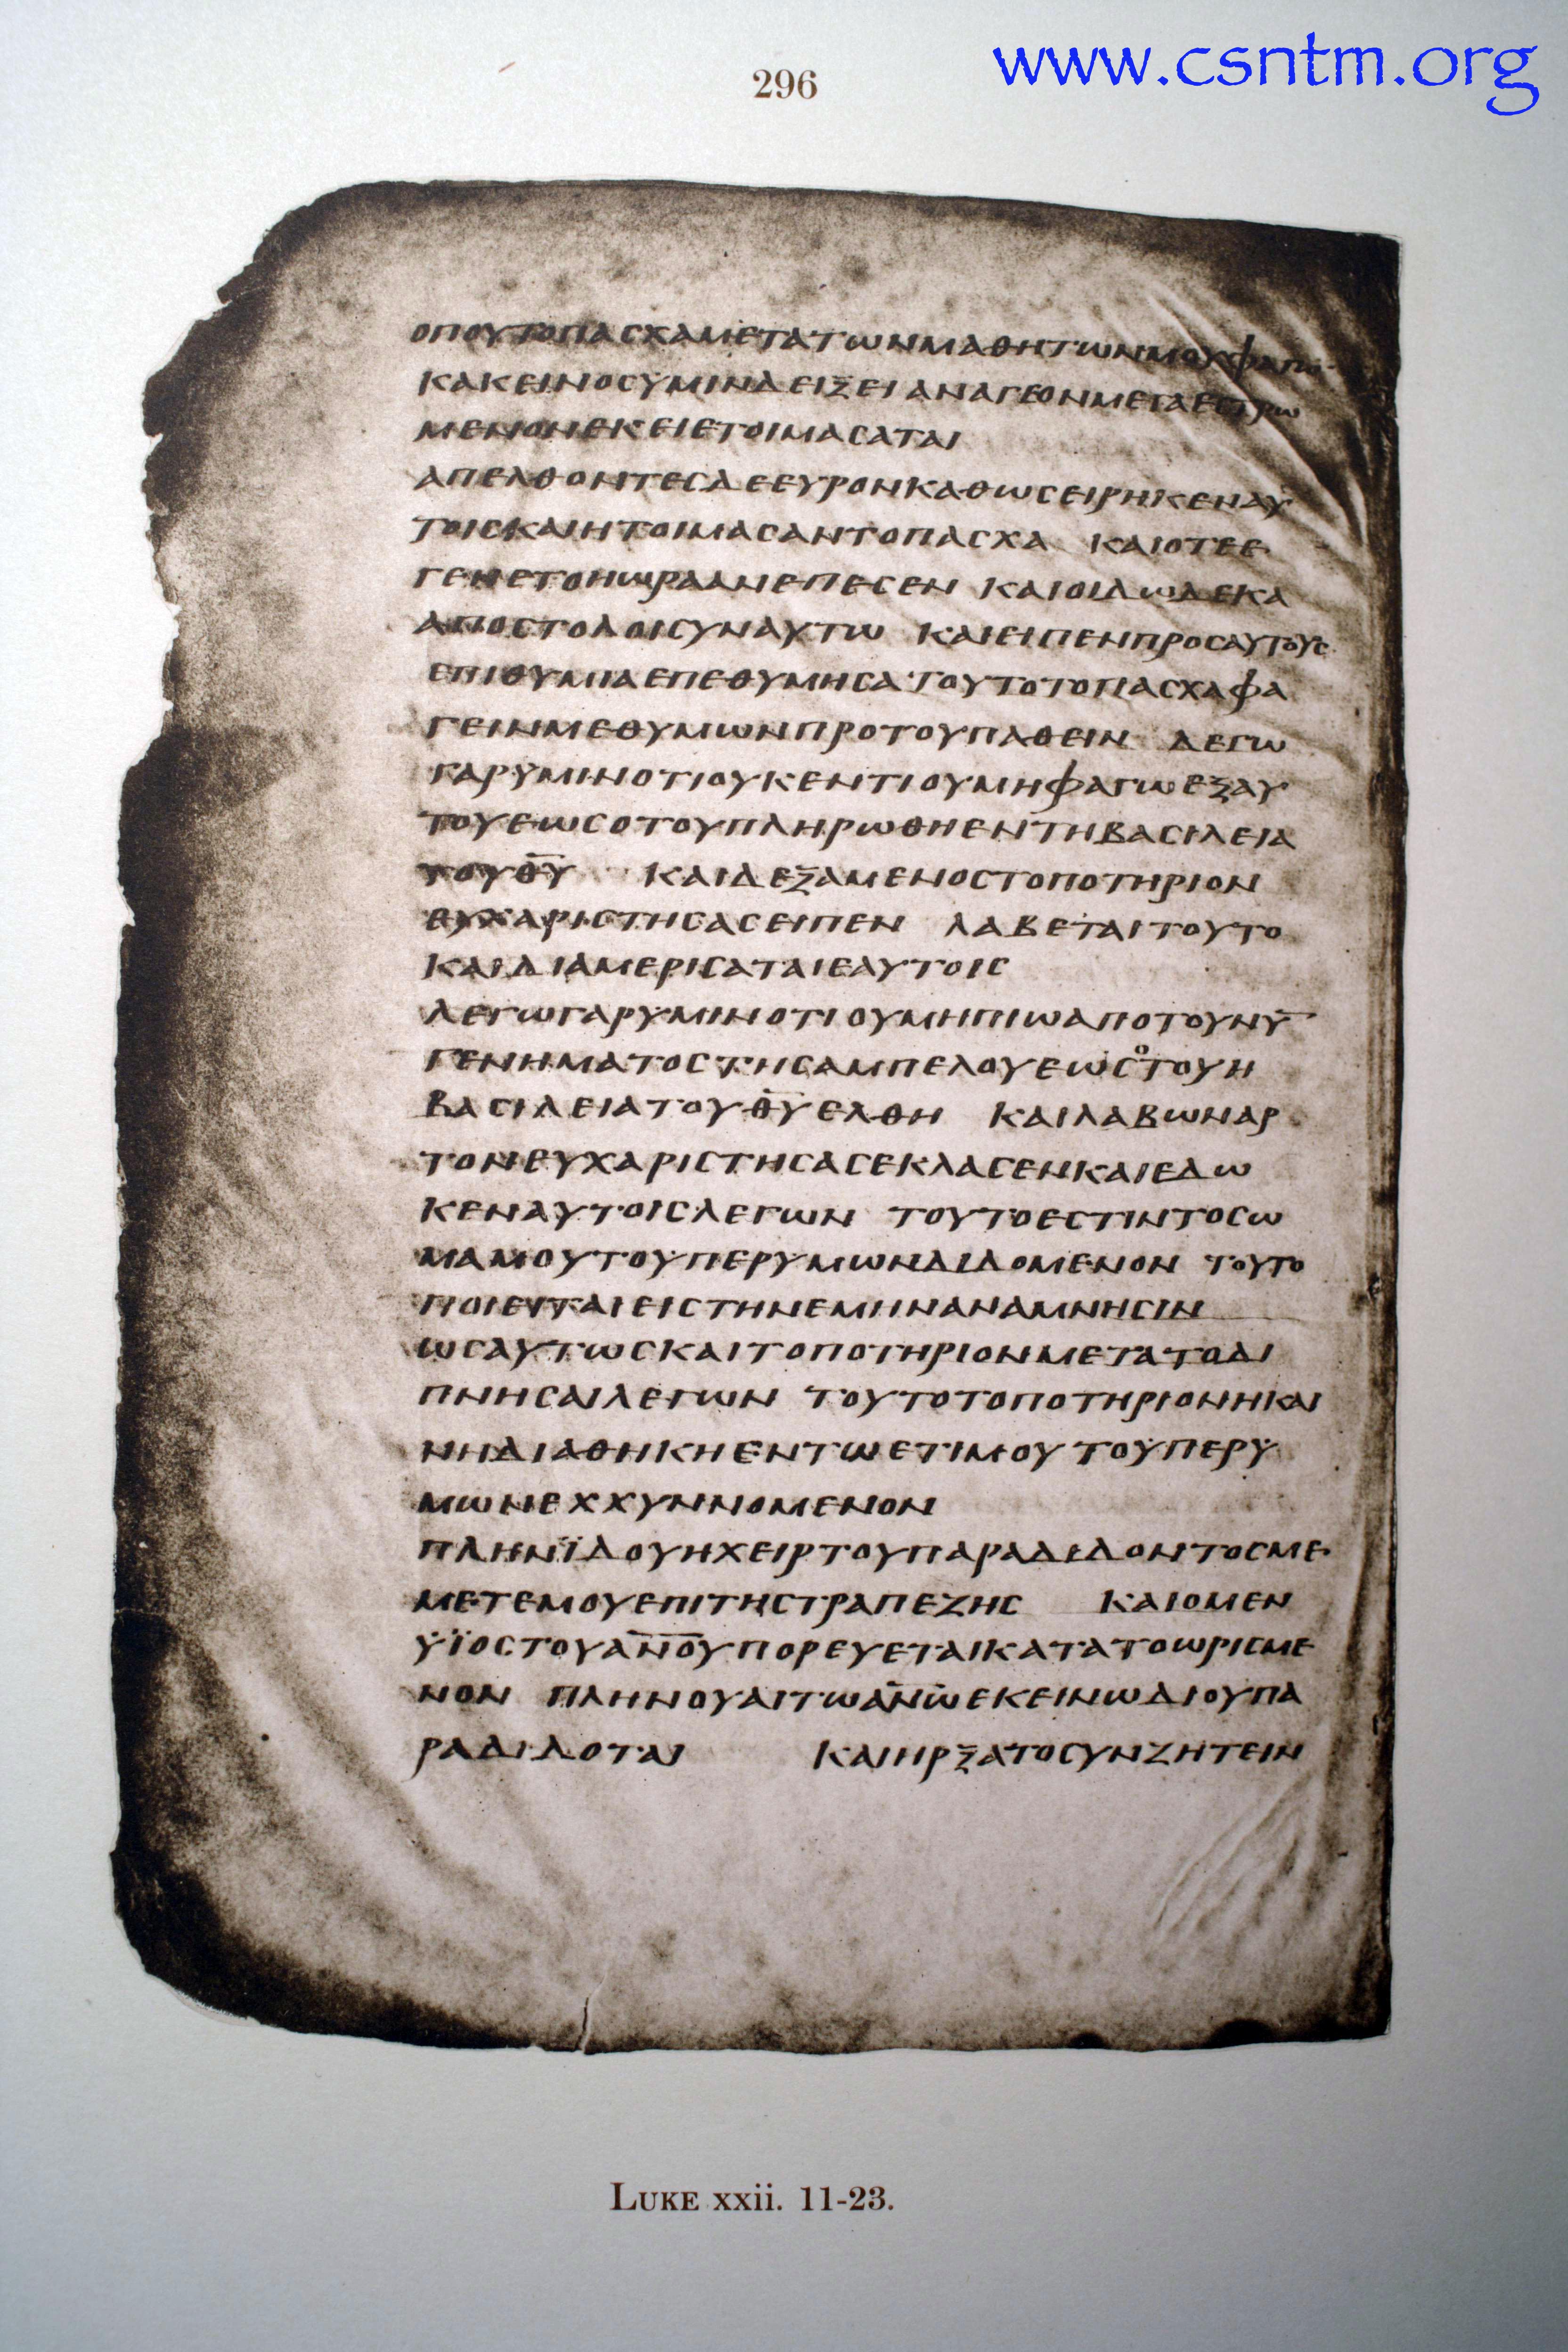 296
www.csntm.org
ΟΠΟΥΤΟΠΑϹΧΑΜΕΤΑΤΩΝΜΑΘΗΤΩΝΜΟΥΦΑΓΩ
ΚΑΚΕΙΝΟϹΥΜΙΝΔΕΙΞΕΙΑΝΑΓΕΟΝΜΕΓΑΕϹΤΡΩ
ΜΕΝΟΝΕΚΕΙΕΤΟΙΜΑϹΑΤΑΙ
ΑΠΕΛΘΟΝΤΕϹΔΕΕΥΡΟΝΚΑΘΩϹΕΙΡΗΚΕΝΑΥ
ΤΟΙϹΚΑΙΗΤΟΙΜΑϹΑΝΤΟΠΑϹΧΑ ΚΑΙΟΤΕΕ
ΓΕΝΕΤΟΗΩΡΑΑΝΕΠΕϹΕΝ ΚΑΙΟΙΔΩΔΕΚΑ
ΑΠΟϹΤΟΛΟΙϹΥΝΑΥΤΩ ΚΑΙΕΙΠΕΝΠΡΟϹΑΥΤΟΥϹ
ΕΠΙΘΥΜΙΑΕΠΕΘΥΜΗϹΑΤΟΥΤΟΤΟΠΑϹΧΑΦΑ
ΓΕΙΝΜΕΘΥΜΩΝΠΡΟΤΟΥΠΑΘΕΙΝ ΛΕΓΩ
ΓΑΡΥΜΙΝΟΤΙΟΥΚΕΝΤΙΟΥΜΗΦΑΓΩΕΞΑΥ
ΤΟΥΕΩϹΟΤΟΥΠΛΗΡΩΘΗΕΝΤΗΒΑϹΙΛΕΙΑ
ΤΟΥΘ̅Υ̅ ΚΑΙΔΕΞΑΜΕΝΟϹΤΟΠΟΤΗΡΙΟΝ
ΕΥΧΑΡΙϹΤΗϹΑϹΕΙΠΕΝ ΛΑΒΕΤΑΙΤΟΥΤΟ
ΚΑΙΔΙΑΜΕΡΙϹΑΤΑΙΕΑΥΤΟΙϹ
ΛΕΓΩΓΑΡΥΜΙΝΟΤΙΟΥΜΗΠΙΩΑΠΟΤΟΥΝΥ̅
ΓΕΝΗΜΑΤΟϹΤΗϹΑΜΠΕΛΟΥΕΩϹΟΤΟΥΗ
ΒΑϹΙΛΕΙΑΤΟΥΘ̅Υ̅ΕΛΘΗ ΚΑΙΛΑΒΩΝΑΡ
ΤΟΝΕΥΧΑΡΙϹΤΗϹΑϹΕΚΛΑϹΕΝΚΑΙΕΔΩ
ΚΕΝΑΥΤΟΙϹΛΕΓΩΝ ΤΟΥΤΟΕϹΤΙΝΤΟϹΩ
ΜΑΜΟΥΤΟΥΠΕΡΥΜΩΝΔΙΔΟΜΕΝΟΝ ΤΟΥΤΟ
ΠΟΙΕΙΤΑΙΕΙϹΤΗΝΕΜΗΝΑΝΑΜΝΗϹΙΝ
ΩϹΑΥΤΩϹΚΑΙΤΟΠΟΤΗΡΙΟΝΜΕΤΑΤΟΔΙ
ΠΝΗϹΑΙΛΕΓΩΝ ΤΟΥΤΟΤΟΠΟΤΗΡΙΟΝΗΚΑΙ
ΝΗΔΙΑΘΗΚΗΕΝΤΩΕΤΙΜΟΥΤΟΥΠΕΡΥ
ΜΩΝΕΧΧΥΝΝΟΜΕΝΟΝ
ΠΛΗΝΪΔΟΥΗΧΕΙΡΤΟΥΠΑΡΑΔΙΔΟΝΤΟϹΜΕ
ΜΕΤΕΜΟΥΕΠΙΤΗϹΤΡΑΠΕΖΗϹ ΚΑΙΟΜΕΝ
ΥΪΟϹΤΟΥΑ̅Ν̅Ο̅Υ̅ΠΟΡΕΥΕΤΑΙΚΑΤΑΤΟΩΡΙϹΜΕ
ΝΟΝ ΠΛΗΝΟΥΑΙΤΩΑ̅Ν̅Ω̅ΕΚΕΙΝΩΔΙΟΥΠΑ
ΡΑΔΙΔΟΤΑΙ ΚΑΙΗΡΞΑΤΟϹΥΝΖΗΤΕΙΝ
LUKE xxii. 11-23.